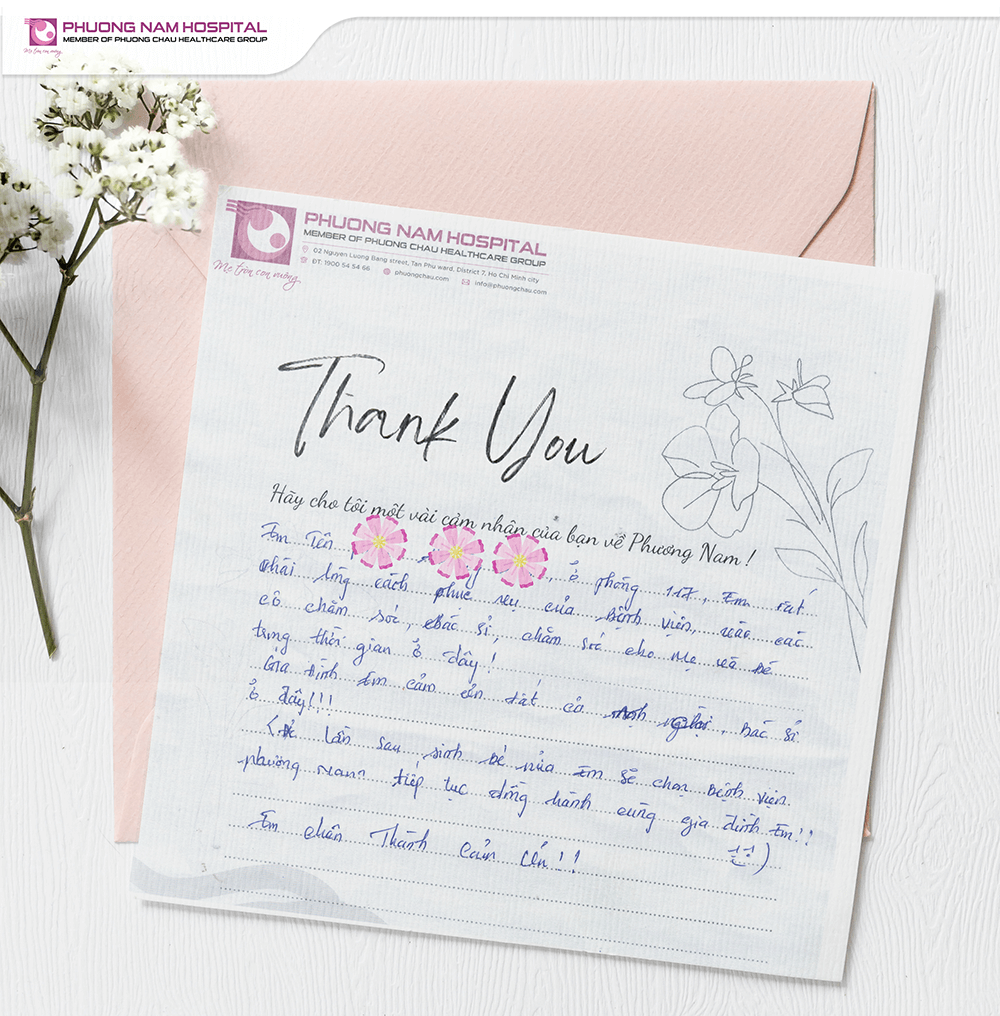 PHUONG NAM HOSPITAL
MEMBER OF PHUONG CHAU HEALTHCARE GROUP
Mẹ tròn con vuông
PHUONG NAM HOSPITAL
MEMBER OF PHUONG CHAU HEALTHCARE GROUP
02 Nguyen Luong Bang street, Tan Phu ward, District 7, Ho Chi Minh city
ĐT: 1900 54 54 66 phuongchau.com info@phuongchau.com
Mẹ tròn con vuông
Thank You
Hãy cho tôi một vài cảm nhận của bạn về Phương Nam !
Em Tên , ở phòng 117, Em rất
hài lòng cách phục vụ của bệnh viện, các
cô chăm sóc, bác sĩ, chăm sóc cho mẹ và bé
trong thời gian ở đây!
Gia đình Em cảm ơn tất cả , Bác sĩ
ở đây!!!
lần sau sinh bé nữa Em sẽ chọn Bệnh viện
phương Nam tiếp tục đồng hành cùng gia đình Em!!
Em chân Thành Cảm ơn!!! :)